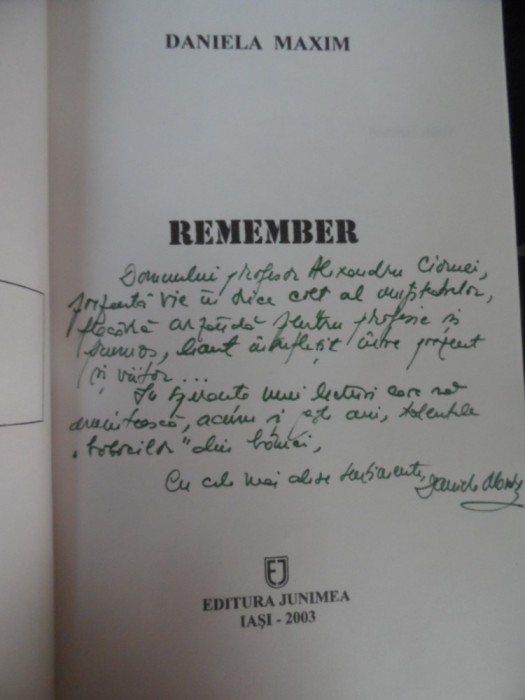 DANIELA MAXIM
REMEMBER
Domnului profesor Alexandru Ciornei,
prezență vie în orice colț al
flacără arzândă pentru profesie și
frumos, liant între prezent
și viitor...
În speranța unei lecturi care să
acum și ani, talentele
"bobocilor" din bănci,
Cu cele mai alese sentimente, Daniela Maxim
EJ
EDITURA JUNIMEA
IAȘI - 2003